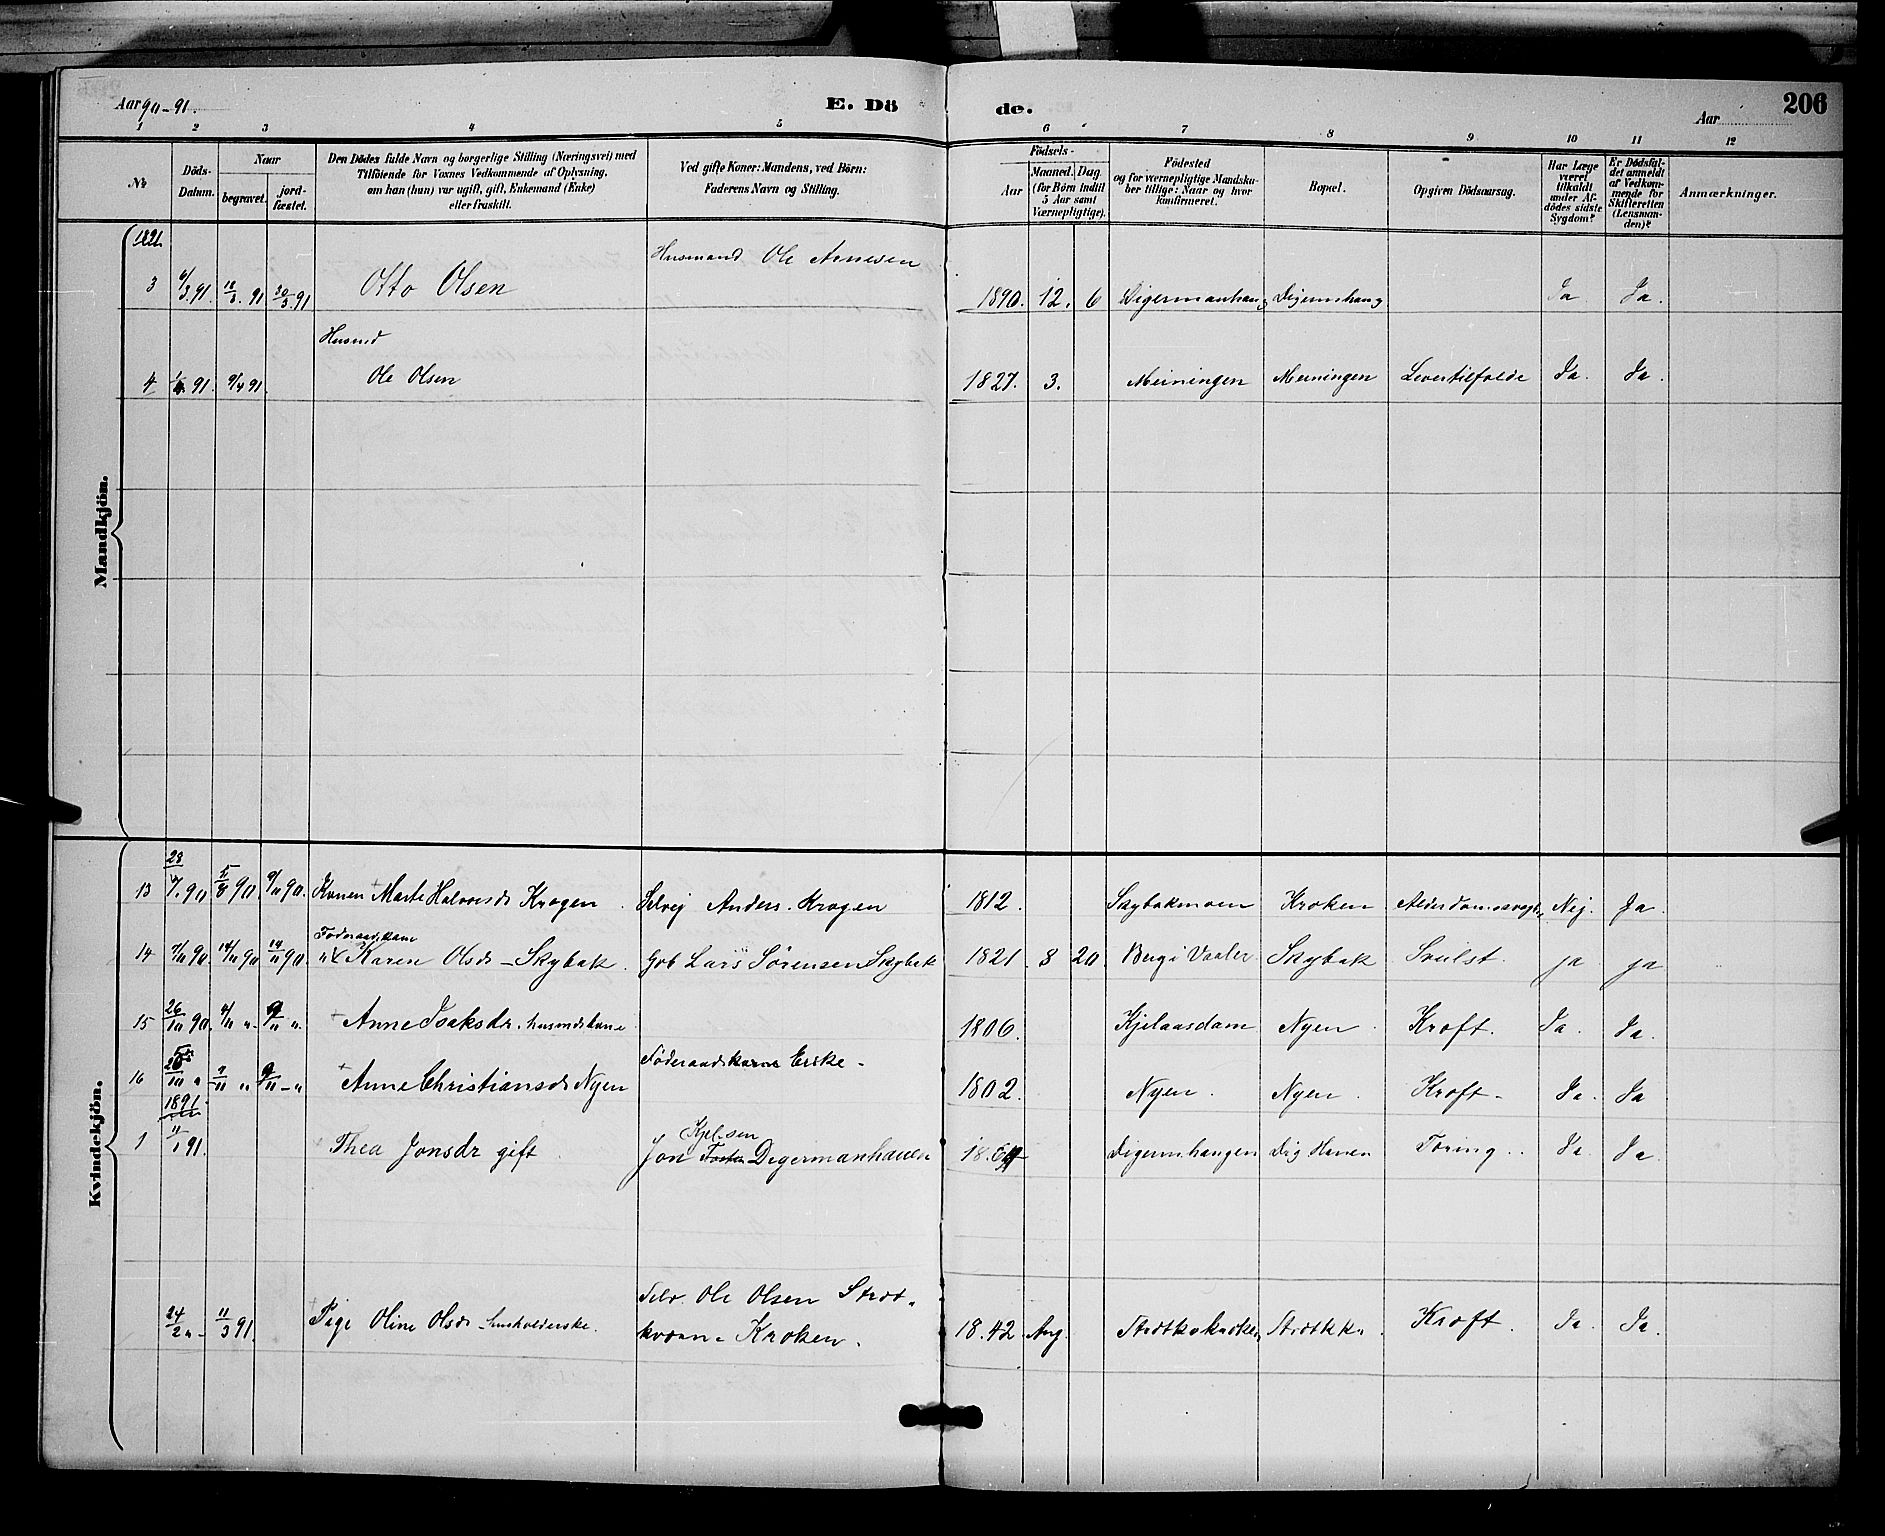 Aar 90-91.
E. Dö
de.
Aar
206
1 2 3 4 5 6 7 8 9 10 11 12
№
Döds-
Datum.
Naar
begravet.
jord-
fæstet.
Den Dödes fulde Navn og borgerlige Stilling (Næringsvei) med
Tilföiende for Voxnes Vedkommende af Oplysning,
om han (hun) var ugift, gift, Enkemand (Enke)
eller fraskilt.
Ved gifte Koner: Mandens, ved Börn:
Faderens Navn og Stilling.
Födsels-
Aar
Maaned. Dag
(for Börn indtil
5 Aar samt
Værnepligtige).
Födested
og for værnepligtige Mandska-
ber tillige: Naar og hvor
konfirmeret.
Bopæl.
Opgiven Dödsaarsag.
Har Læge
været
tilkaldt
under Af-
dödes sidste
Sygdom?
Er Dödsfal-
det anmeldt
af Vedkom-
mende for
Skifteretten
(Lensman-
den)?
Anmærkninger.
Mandkjön.
1891
Husmand Ole Arnesen
3 6/3 91. 18/3 91 30/3 91 Otto Olsen 1890. 12. 6 Digermanhaug Digermhaug Ja Ja.
Husmd
4 91. 9/4 91. Ole Olsen 1827. 3. Meiningen Meiningen Ja. Ja.
Kvindekjön.
13 28/7 90 90. 9/11 90. Konen Marte Halvorsdr Krogen Selvej Anders Krogen 1812. Skybakmoen Kroken Nej. Ja.
Föderaadskone
14 7/11 90 14/11 90 14/11 90. Karen Olsdr - Skybak. Gob Lars Sørensen Skybak 1821 8 20 Berg i Vaaler Skybak Svulst. ja ja
15 26/10 90. 4/11 " 9/11 ". Anne Isaksdr. husmdskone 1806. Kjelaasdam Nyen. Kroft. Ja. Ja.
Föderaadskone Enke -
16 /10 " 9/11 " 9/11 - " Anne Christiansdr Nyen 1802. Nyen. Nyen. Kroft - Ja. Ja
1891
Kjelsen
1 91. Thea Jonsdr gift Jon Digermanhauen 18.64 Digermhangen Dig Hauen Tæring.. Ja. Ja.
Selv. Ole Olsen
24/2 " - 11/3 91. Pige Oline Olsdr - husholderske. Kroken. 18.42 Aug. Kroft. Ja. Ja.